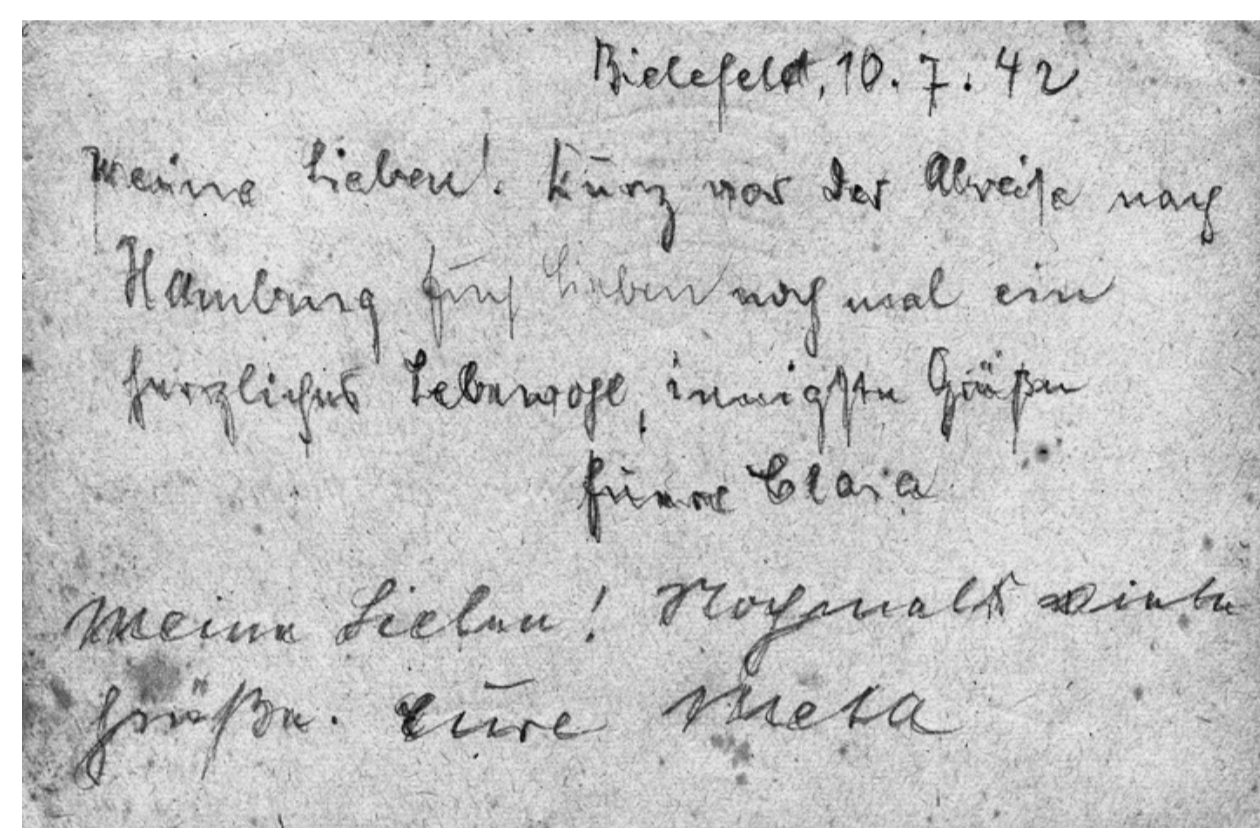 Bielefeld, 10. 7. 42
Meine Lieben! Kurz vor der Abreise nach
Hamburg Euch Lieben noch mal ein
herzliches Lebewohl, innigste Grüße
Eure Clara
Meine Lieben! Nochmals
Grüße. Eure Meta